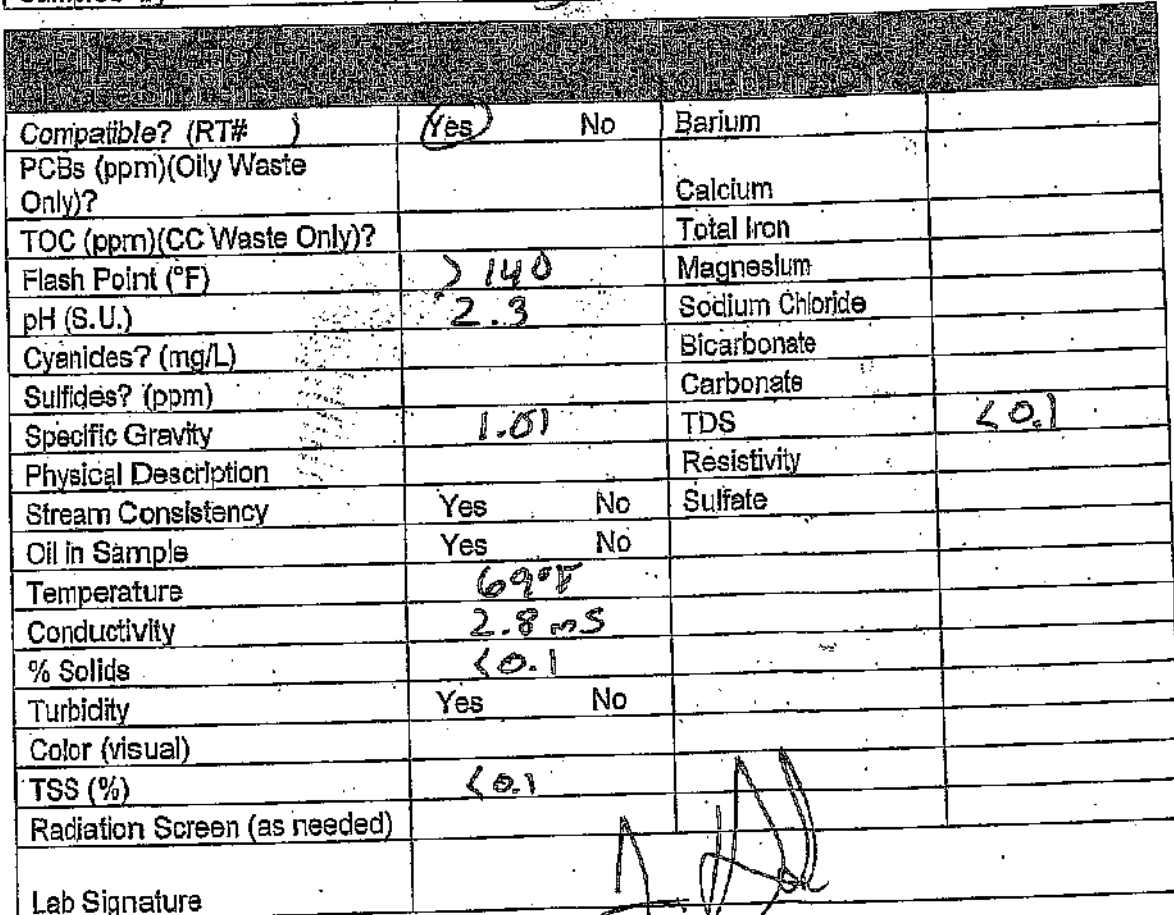 Compatible? (RT# ) Yes No Barium
PCBs (ppm)(Oily Waste
Only)? Calcium
TOC (ppm)(CC Waste Only)? Total Iron
Flash Point (°F) >140 Magnesium
pH (S.U.) 2.3 Sodium Chloride
Cyanides? (mg/L) Bicarbonate
Sulfides? (ppm) Carbonate
Specific Gravity 1.01 TDS <0.1
Physical Description Resistivity
Stream Consistency Yes No Sulfate
Oil in Sample Yes No
Temperature 69°F
Conductivity 2.8 mS
% Solids <0.1
Turbidity Yes No
Color (visual)
TSS (%) <0.1
Radiation Screen (as needed)
Lab Signature